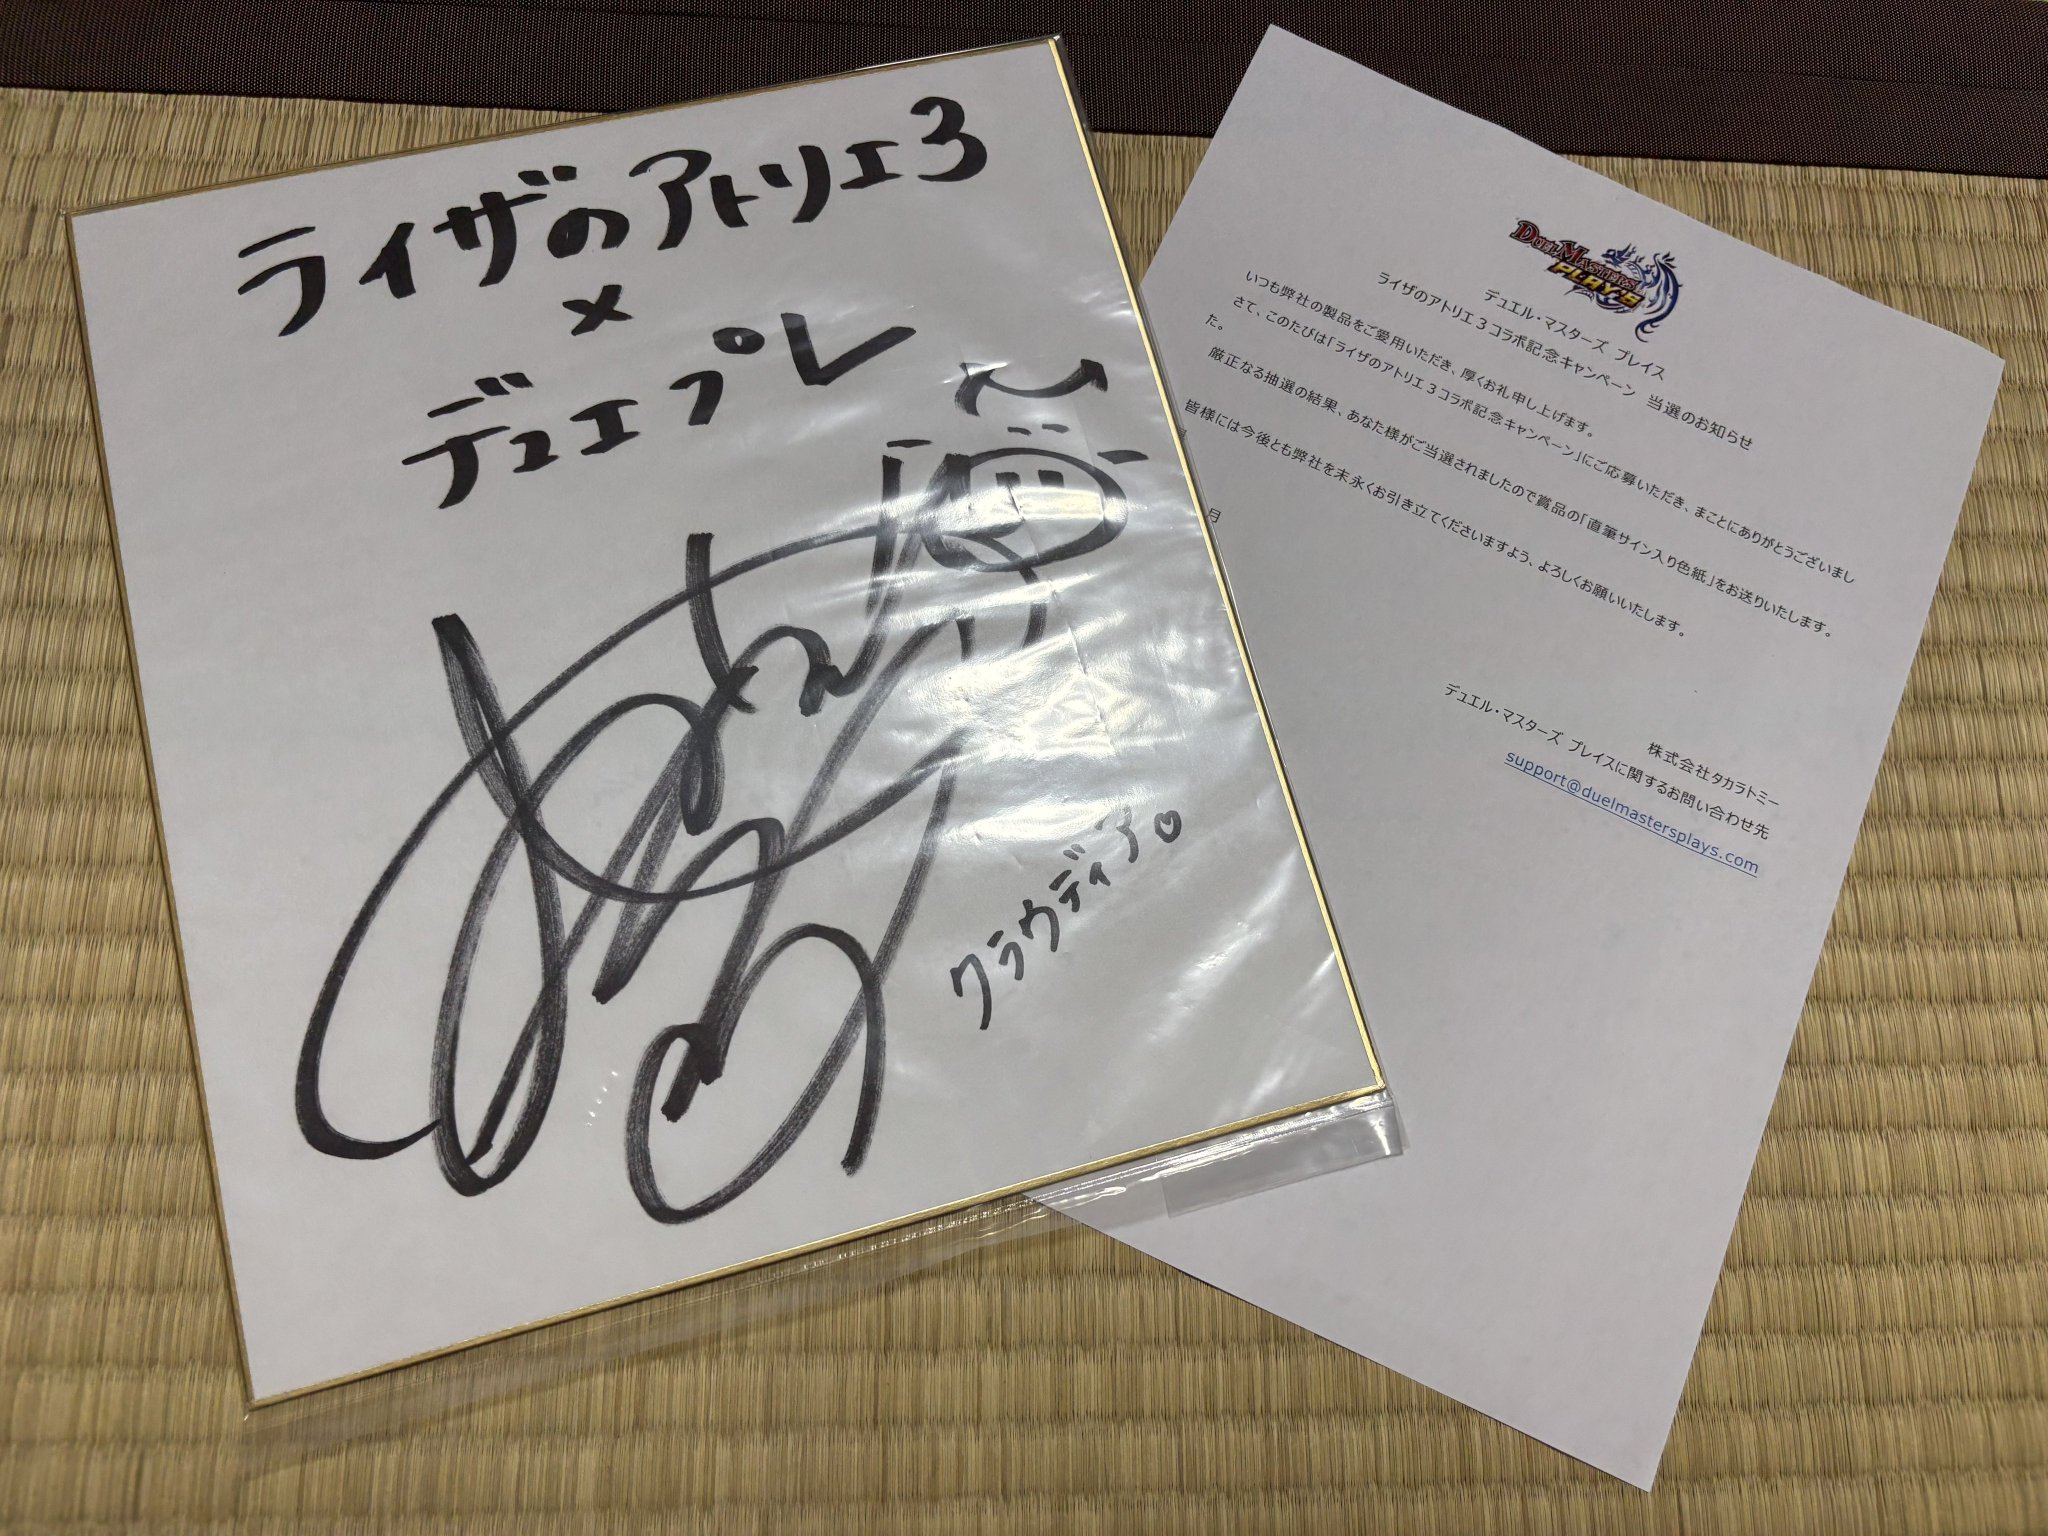 ライザのアトリエ3
×
デュエプレ
クラウディア。
DUEL MASTERS
PLAY'S
デュエル・マスターズ プレイス
ライザのアトリエ3コラボ記念キャンペーン 当選のお知らせ
いつも弊社の製品をご愛用いただき、厚くお礼申し上げます。
さて、このたびは「ライザのアトリエ3コラボ記念キャンペーン」にご応募いただき、まことにありがとうございまし
た。
厳正なる抽選の結果、あなた様がご当選されましたので賞品の「直筆サイン入り色紙」をお送りいたします。
皆様には今後とも弊社を末永くお引き立てくださいますよう、よろしくお願いいたします。
月
株式会社タカラトミー
デュエル・マスターズ プレイスに関するお問い合わせ先
support@duelmastersplays.com